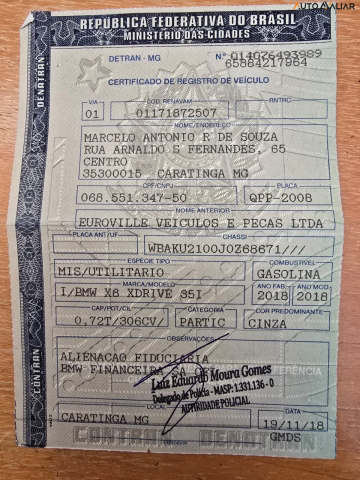 AUTOAVALIAR
REPÚBLICA FEDERATIVA DO BRASIL
MINISTÉRIO DAS CIDADES
DETRAN - MG Nº 014026493989
65884217964
CERTIFICADO DE REGISTRO DE VEÍCULO
VIA CÓD. RENAVAM RNTRC
01 01171872507
NOME/ENDEREÇO
MARCELO ANTONIO R DE SOUZA
RUA ARNALDO S FERNANDES, 65
CENTRO
35300015 CARATINGA MG
CPF/CNPJ PLACA
068.551.347-50 QPP-2008
NOME ANTERIOR
EUROVILLE VEICULOS E PECAS LTDA
PLACA ANT/UF CHASSI
WBAKU2100J0Z68671///
ESPÉCIE TIPO COMBUSTÍVEL
MIS/UTILITARIO GASOLINA
MARCA/MODELO ANO FAB. ANO MOD.
I/BMW X6 XDRIVE 35I 2018 2018
CAP/POT/CIL CATEGORIA COR PREDOMINANTE
0.72T/306CV/ PARTIC CINZA
OBSERVAÇÕES
ALIENACAO FIDUCIARIA
BMW FINANCEIRA SA CFI
Luiz Eduardo Moura Gomes
Delegado de Polícia - MASP: 1.331.136 - 0
AUTORIDADE POLICIAL
LOCAL DATA
CARATINGA MG 19/11/18
GMDS
CONTRAN DENATRAN
DENATRAN
CONTRAN